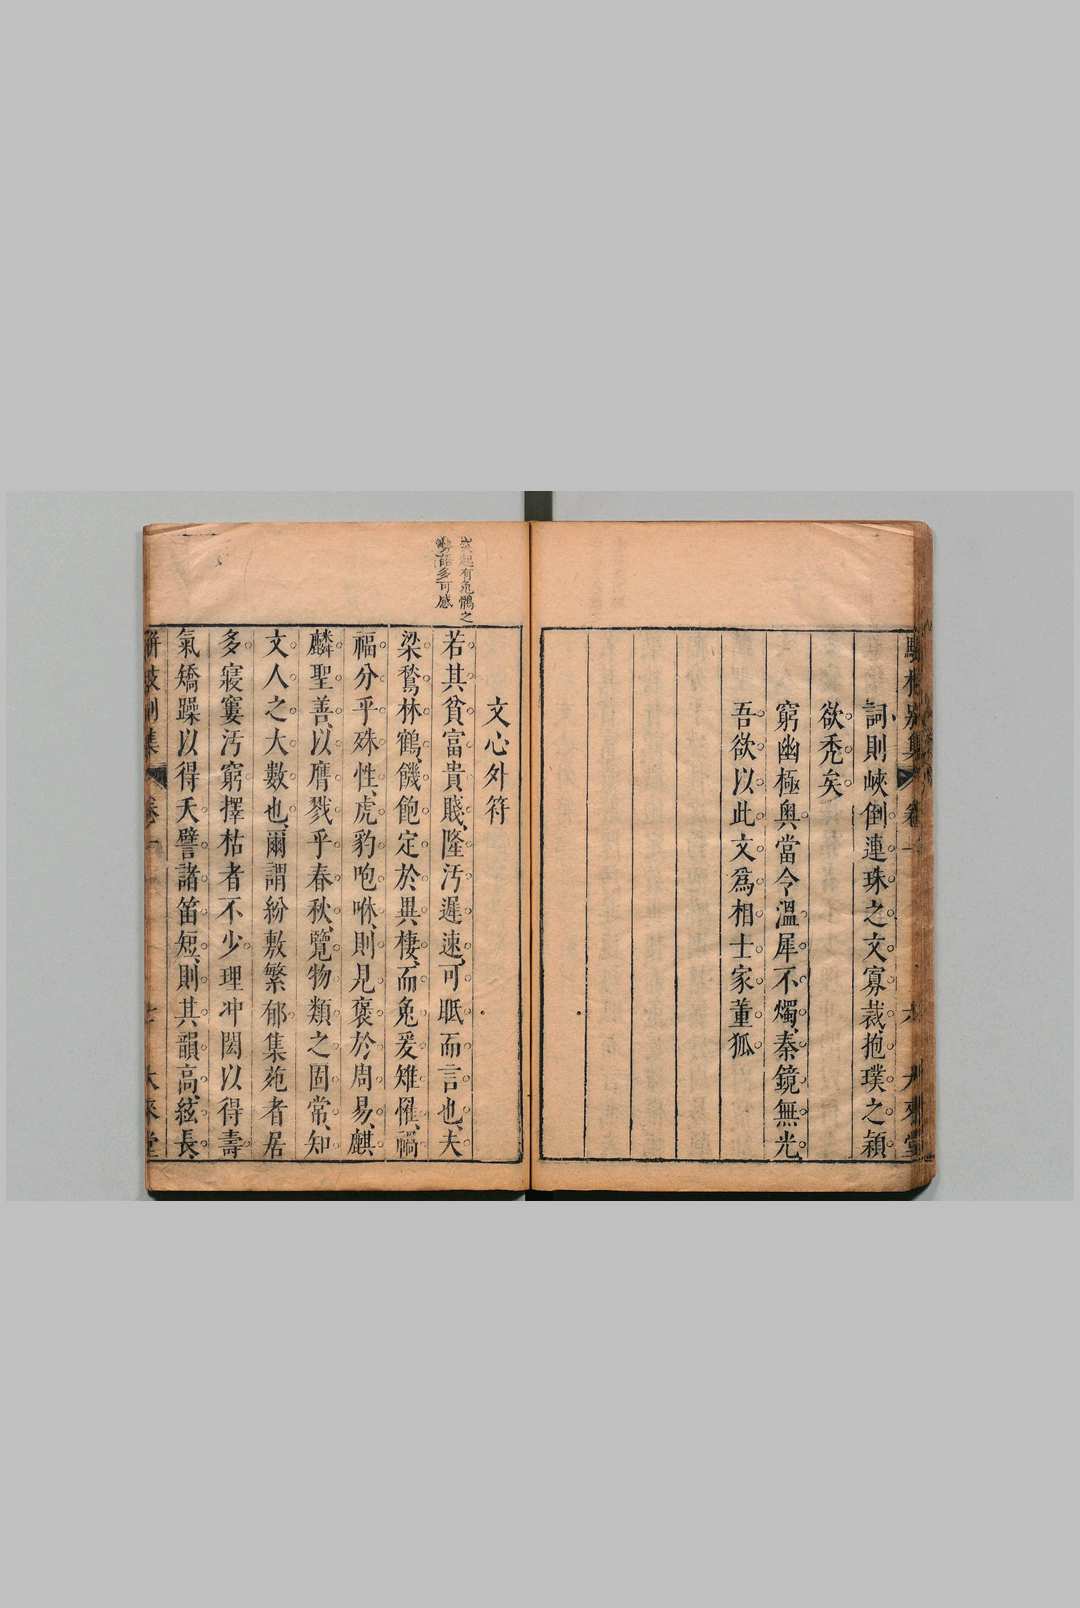 詞則峽倒連珠之文寡裁抱璞之穎
欲禿矣
窮幽極奧當令溫犀不燭秦鏡無光
吾欲以此文為相士家董狐
文心外符
起有鳬鶴之
語多可感
若其貧富貴賤隆汚遲速可眡而言也夫
梁鶖林鶴饑飽定於異棲而兔爰雉罹禍
福分乎殊性虎豹咆咻則見褒於周易麒
麟聖善以膺戮乎春秋覽物類之固常知
文人之大數也爾謂紛敷繁郁集菀者居
多寢窶汚窮擇枯者不少理冲閎以得壽
氣矯躁以得夭譬諸笛短則其韻高絃長